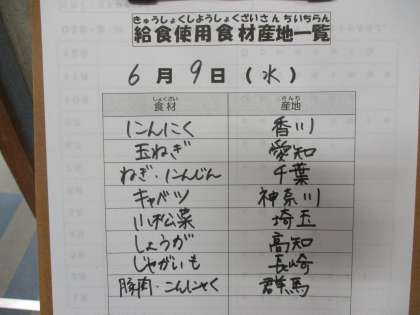 きゅうしょくしようしょくざいさんちいちらん
給食使用食材産地一覧
6月9日(水)
しょくざい さんち
食材 産地
にんにく 香川
玉ねぎ 愛知
ねぎ・にんじん 千葉
キャベツ 神奈川
小松菜 埼玉
しょうが 高知
じゃがいも 長崎
豚肉・こんにゃく 群馬